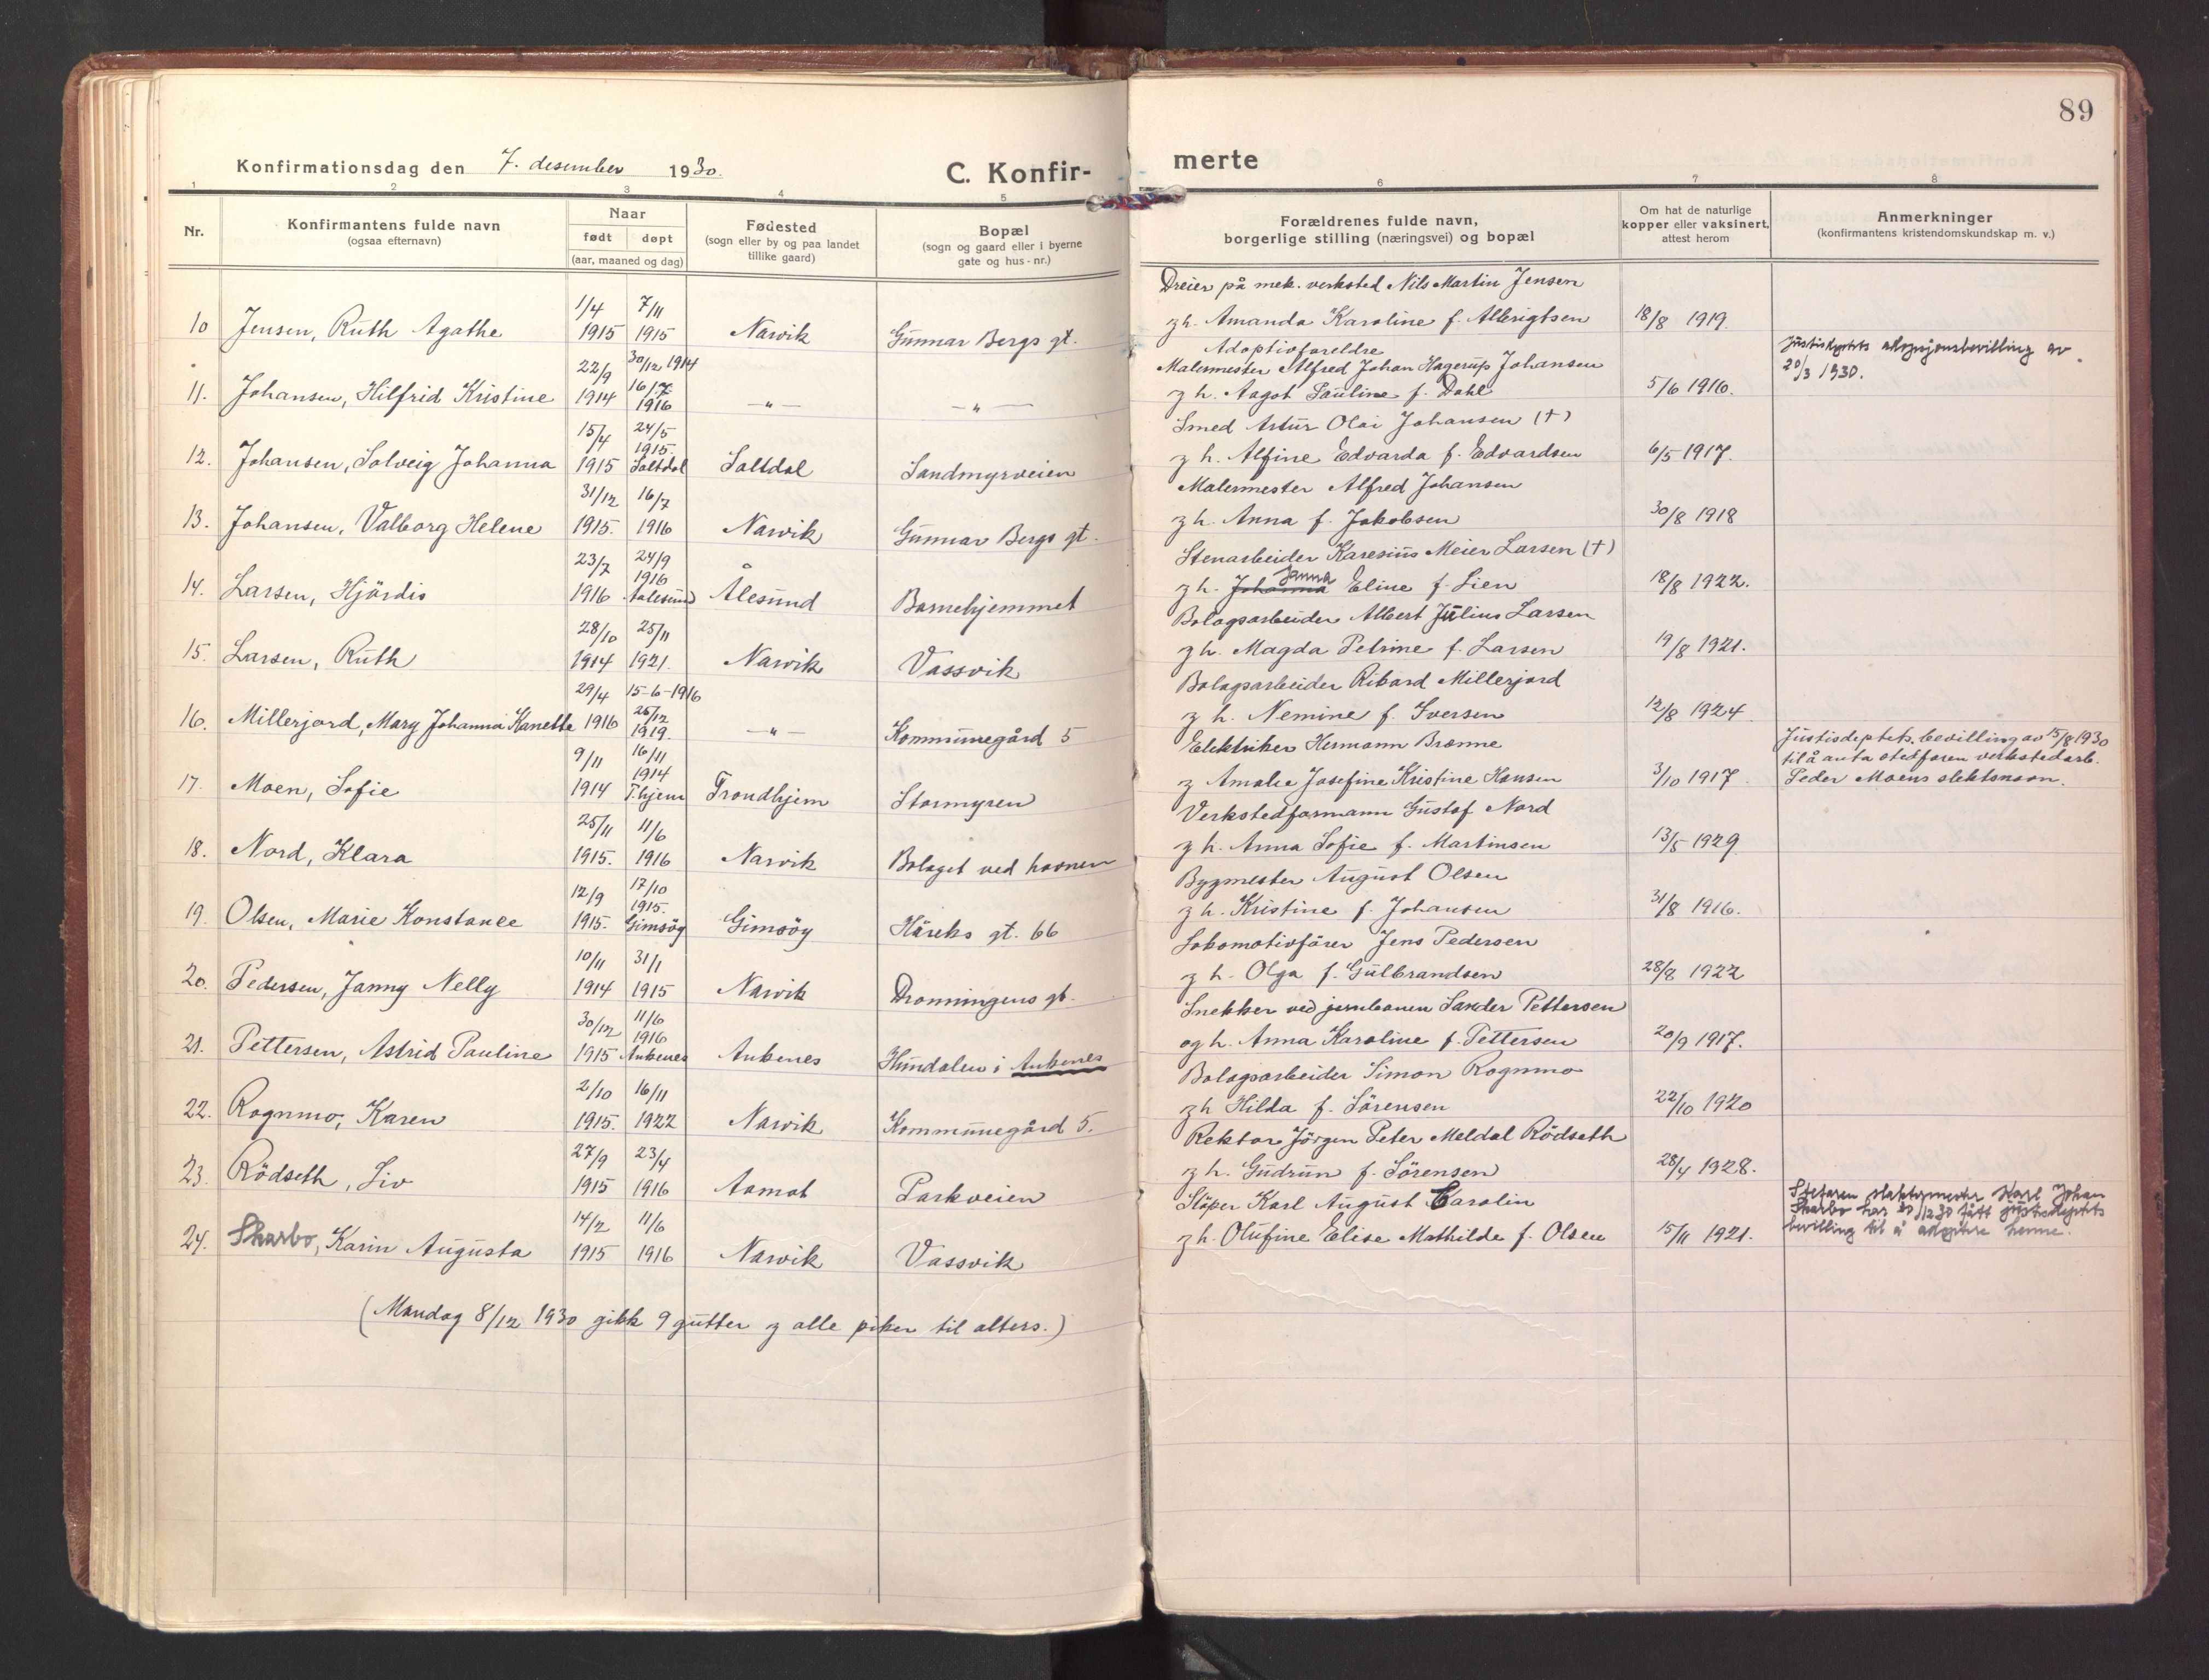 89
Konfirmationsdag den 7. desember 1930.
C. Konfir-
merte
1 2 3 4 5 6 7 8
Nr.
Konfirmantens fulde navn
(ogsaa efternavn)
Naar
født døpt
(aar, maaned og dag)
Fødested
(sogn eller by og paa landet
tillike gaard)
Bopæl
(sogn og gaard eller i byerne
gate og hus-nr.)
Forældrenes fulde navn,
borgerlige stilling (næringsvei) og bopæl
Om hat de naturlige
kopper eller vaksinert,
attest herom
Anmerkninger
(konfirmantens kristendomskundskap m. v.)
Dreier på mek. verksted Nils Martin Jensen
1/4 7/11
10 Jensen, Ruth Agathe 1915 1915 Narvik Gunnar Bergs gt. g h. Amanda Karoline f. Albrigtsen 18/8 1919.
Adoptivforeldre
22/9 30/12 1914 Malermester Alfred Johan Hagerup Johansen
16/7
11. Johansen, Hilfrid Kristine 1914 1916 —"— —"— g h. Aagot Pauline f. Dahl 5/6 1916. Justisdeptets adopsjonsbevilling av
20/3 1930.
15/4 24/5 Smed Artur Olai Johansen (†)
1915.
12. Johansen, Solveig Johanna 1915 Saltdal Saltdal Sandmyrveien g h. Alfine Edvarda f. Edvardsen 6/5 1917.
31/12 16/7 Malermester Alfred Johansen
13. Johansen, Valborg Helene 1915. 1916 Narvik Gunnar Bergs gt. g h. Anna f. Jakobsen 30/8 1918
23/7 24/9 Stenarbeider Karesius Meier Larsen (†)
1916 Janna
14. Larsen, Hjördis 1916 Aalesund Ålesund Barnehjemmet g h. Johanna Eline f. Lien 18/8 1922.
28/10 25/11 Bolagsarbeider Albert Julius Larsen
15. Larsen, Ruth 1914 1921. Narvik Vassvik g h. Magda Petrine f. Larsen 19/8 1921.
29/4 15-6-1916 Bolagsarbeider Rikard Millerjord
26/12
16. Millerjord, Mary Johanna Kanette 1916 1919. —"— Kommunegård 5 g h. Nemine f. Iversen 12/8 1924
9/11 16/11 Elektriker Hermann Brænne
1914
17. Moen, Sofie 1914 T.hjem Trondhjem Stormyren g Amalie Josefine Kristine Hansen 3/10 1917 Justisdeptets. bevilling av 15/8 1930
til å anta stedfaren verkstedarb.
Peder Moens slektsnavn.
25/11 11/6 Verkstedformann Gustaf Nord
18. Nord, Klara 1915. 1916 Narvik Bolaget ved havnen g h. Anna Sofie f. Martinsen 13/5 1929
12/9 17/10 Bygmester August Olsen
1915.
19. Olsen, Marie Konstanse 1915. Gimsöy Gimsöy Håreks gt. 66 g h. Kristine f. Johansen 31/8 1916.
10/11 31/1 Lokomotivfører Jens Pedersen
20. Pedersen, Janny Nelly 1914 1915 Narvik Dronningens gt. g h. Olga f. Gulbrandsen 28/8 1922
30/12 11/6 Snekker ved jernbanen Sander Pettersen
1916
21. Pettersen, Astrid Pauline 1915 Ankenes Ankenes Hundalen i Ankenes og h. Anna Karoline f. Pettersen 20/9 1917.
2/10 16/11 Bolagsarbeider Simon Rognmo
22. Rognmo, Karen 1915. 1922 Narvik Kommunegård 5. g h Hilda f. Sörensen 22/10 1920
27/9 23/4 Rektor Jörgen Peter Meldal Rödseth
23. Rödseth, Liv 1915 1916 Aamot Parkveien g h. Gudrun f. Sörensen 28/4 1928.
14/2 11/6 Stöper Karl August Carolin
24. Skarbo, Karin Augusta 1915 1916 Narvik Vassvik g h. Olufine Elise Mathilde f. Olsen 15/11 1921. Stefaren slaktermester Karl Johan
Skarbo har 20/12 30 fått justisdeptets
bevilling til å adoptere henne.
(Mandag 8/12 1930 gikk 9 gutter g alle piker til alters.)